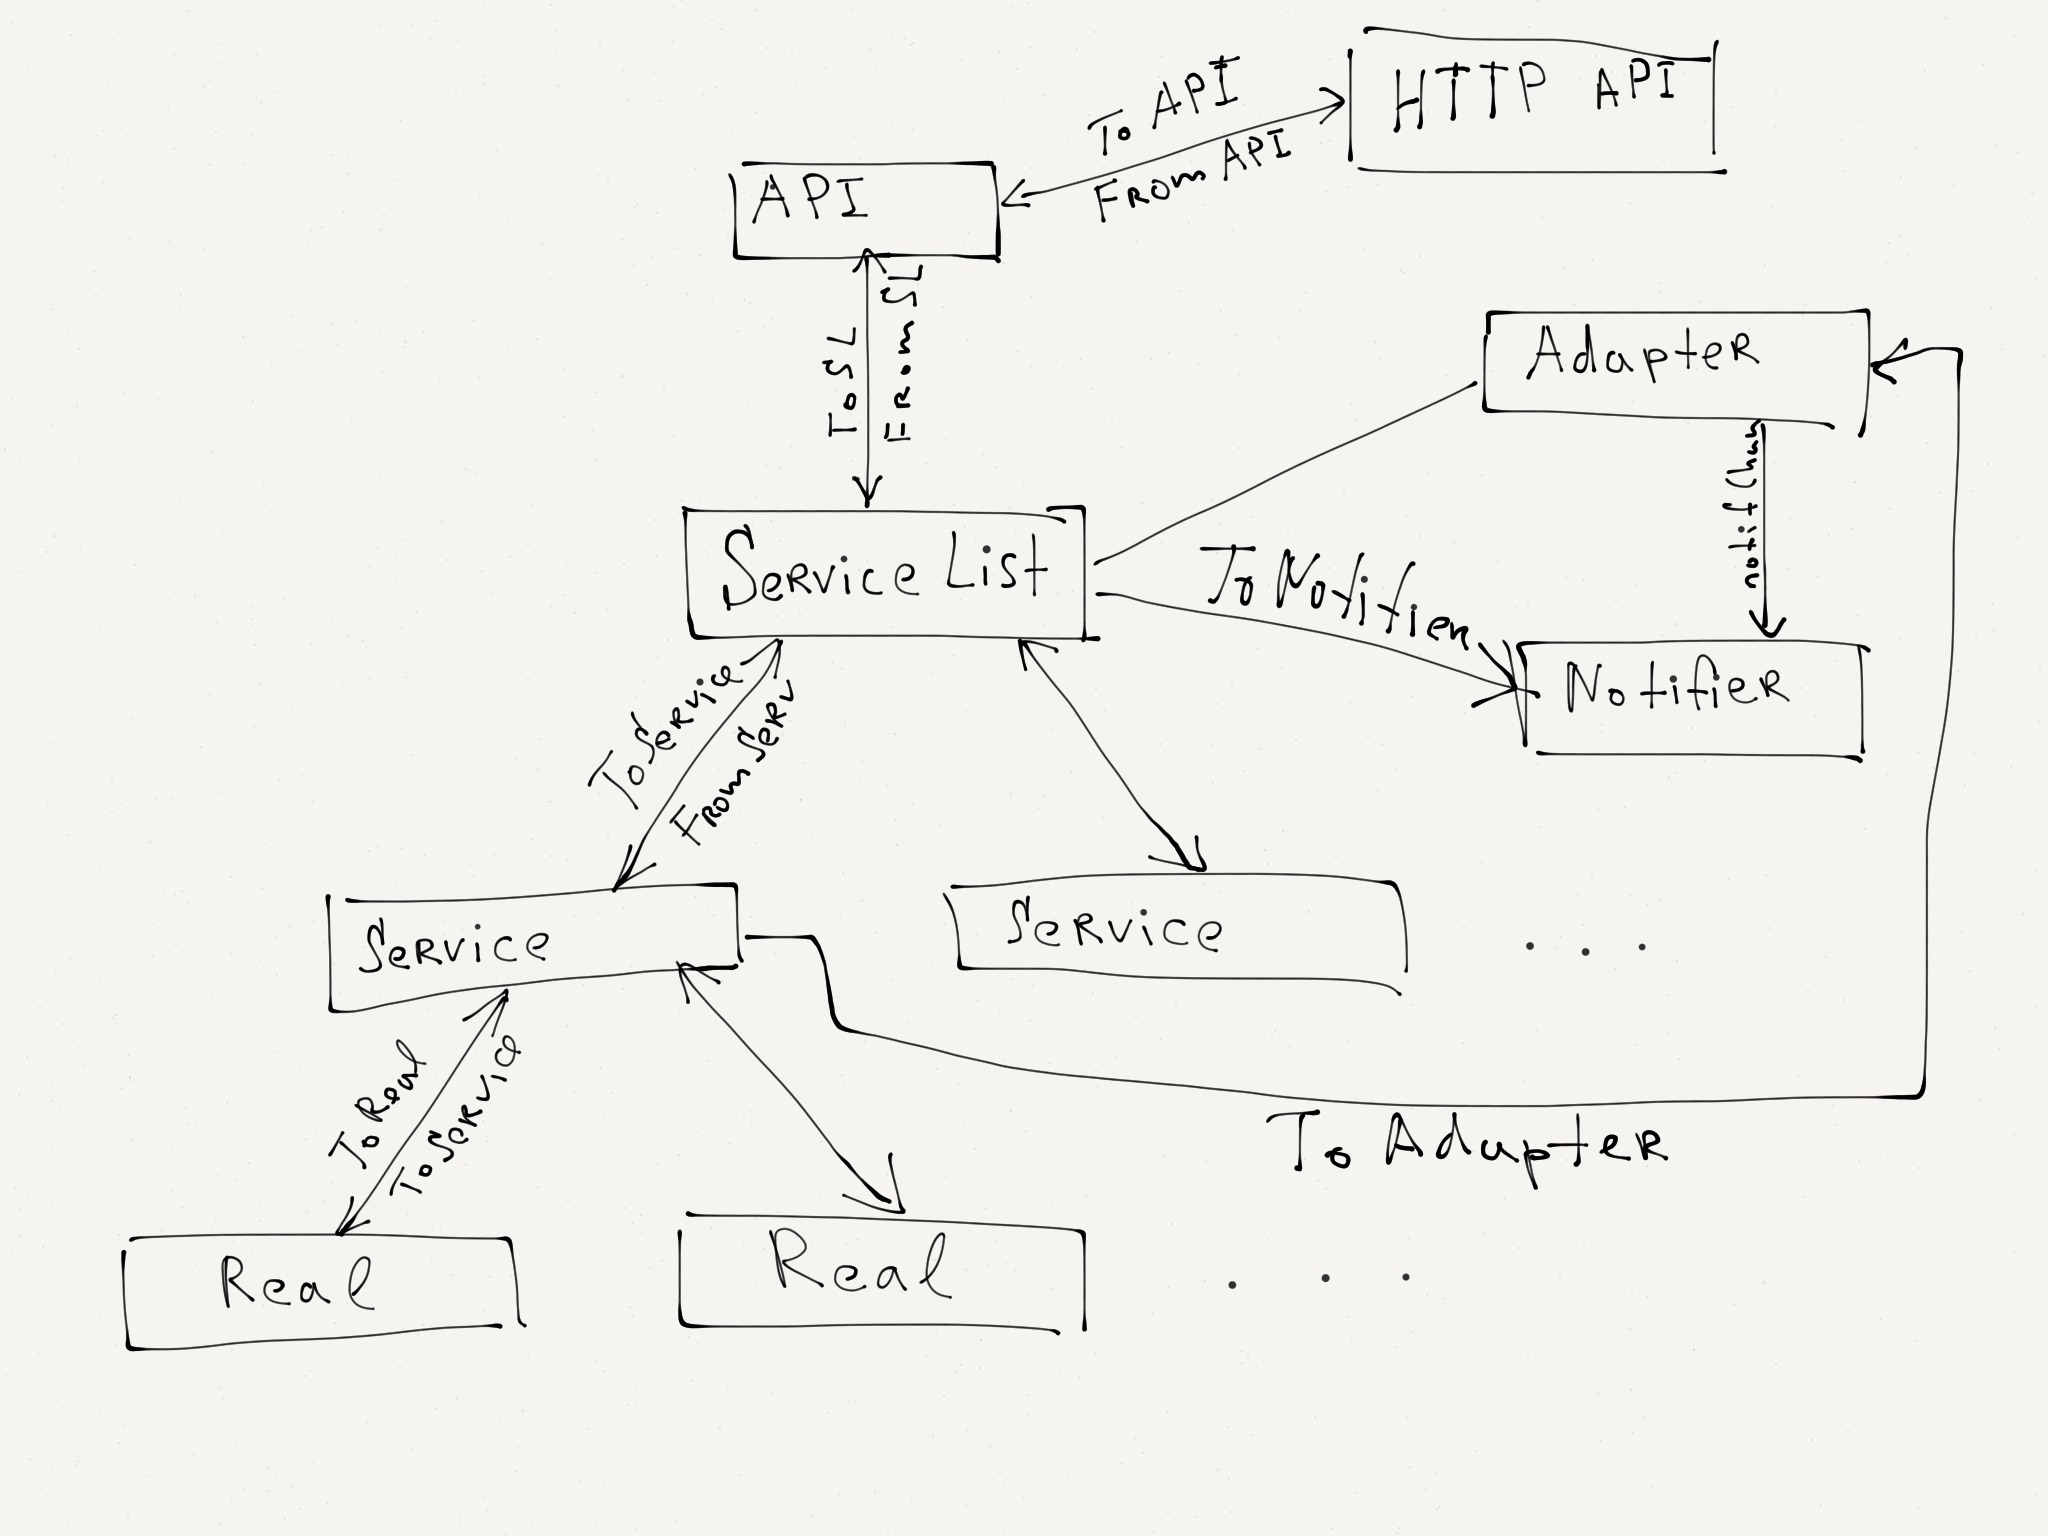 HTTP API
To API
From API
API
To SL
From SL
Adapter
notifChan
Service List
To Notifier
Notifier
To Service
From Serv
Service
Service
. . .
To Real
To Service
To Adapter
Real
Real
. . .